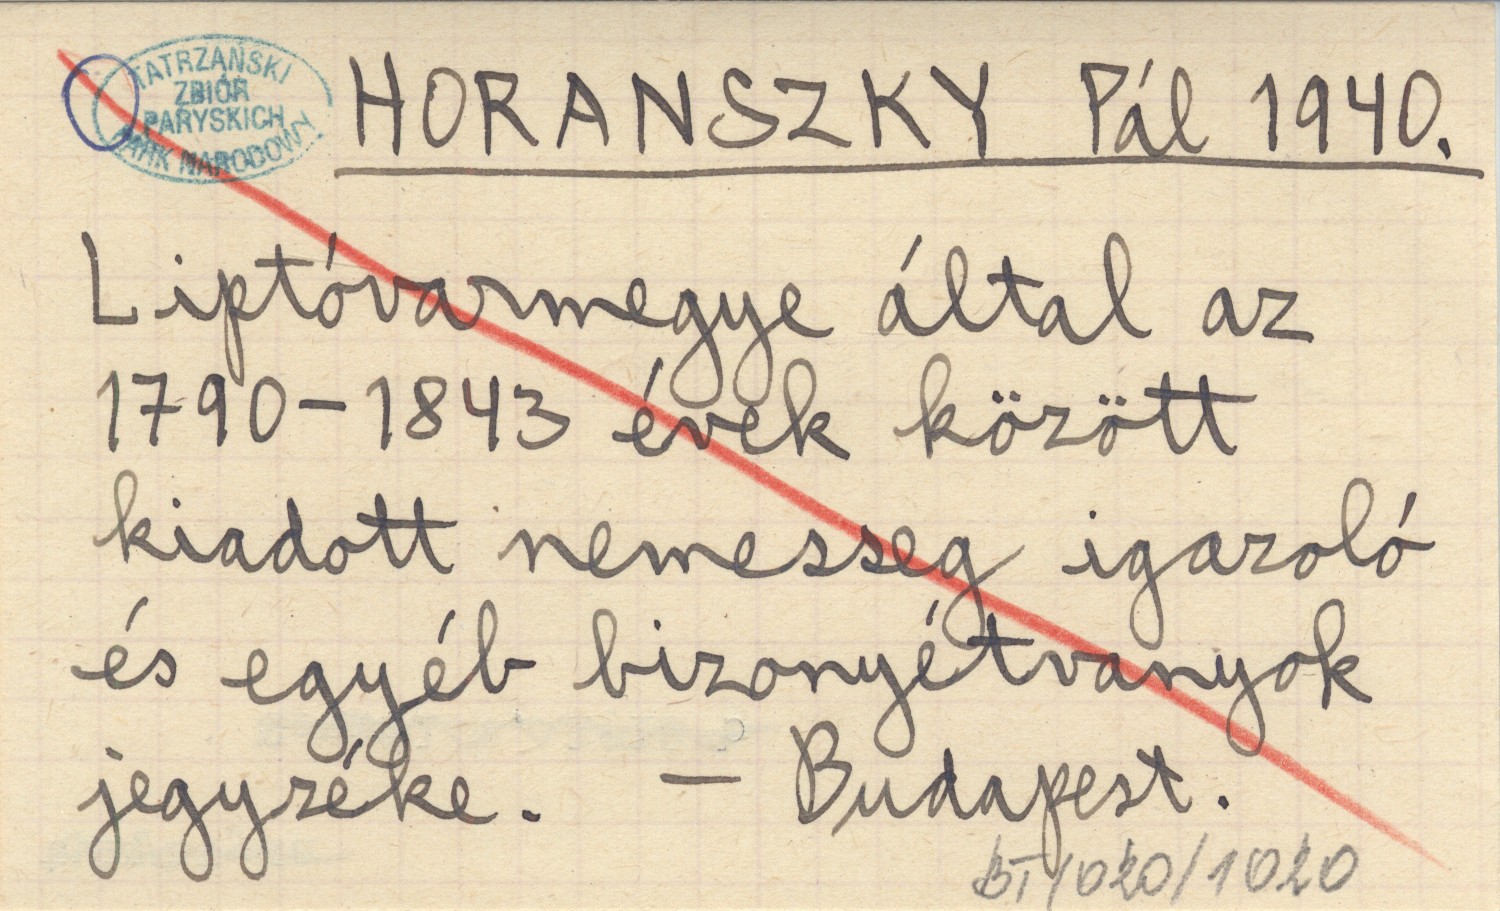 TATRZAŃSKI
ZBIÓR
PARYSKICH
PARK NARODOWY
HORANSZKY Pál 1940.
Liptóvarmegye által az
1790-1843 évek között
kiadott nemesseg igazoló
és egyéb bizonyétvanyok
jegyzéke. — Budapest.
BT/020/1020